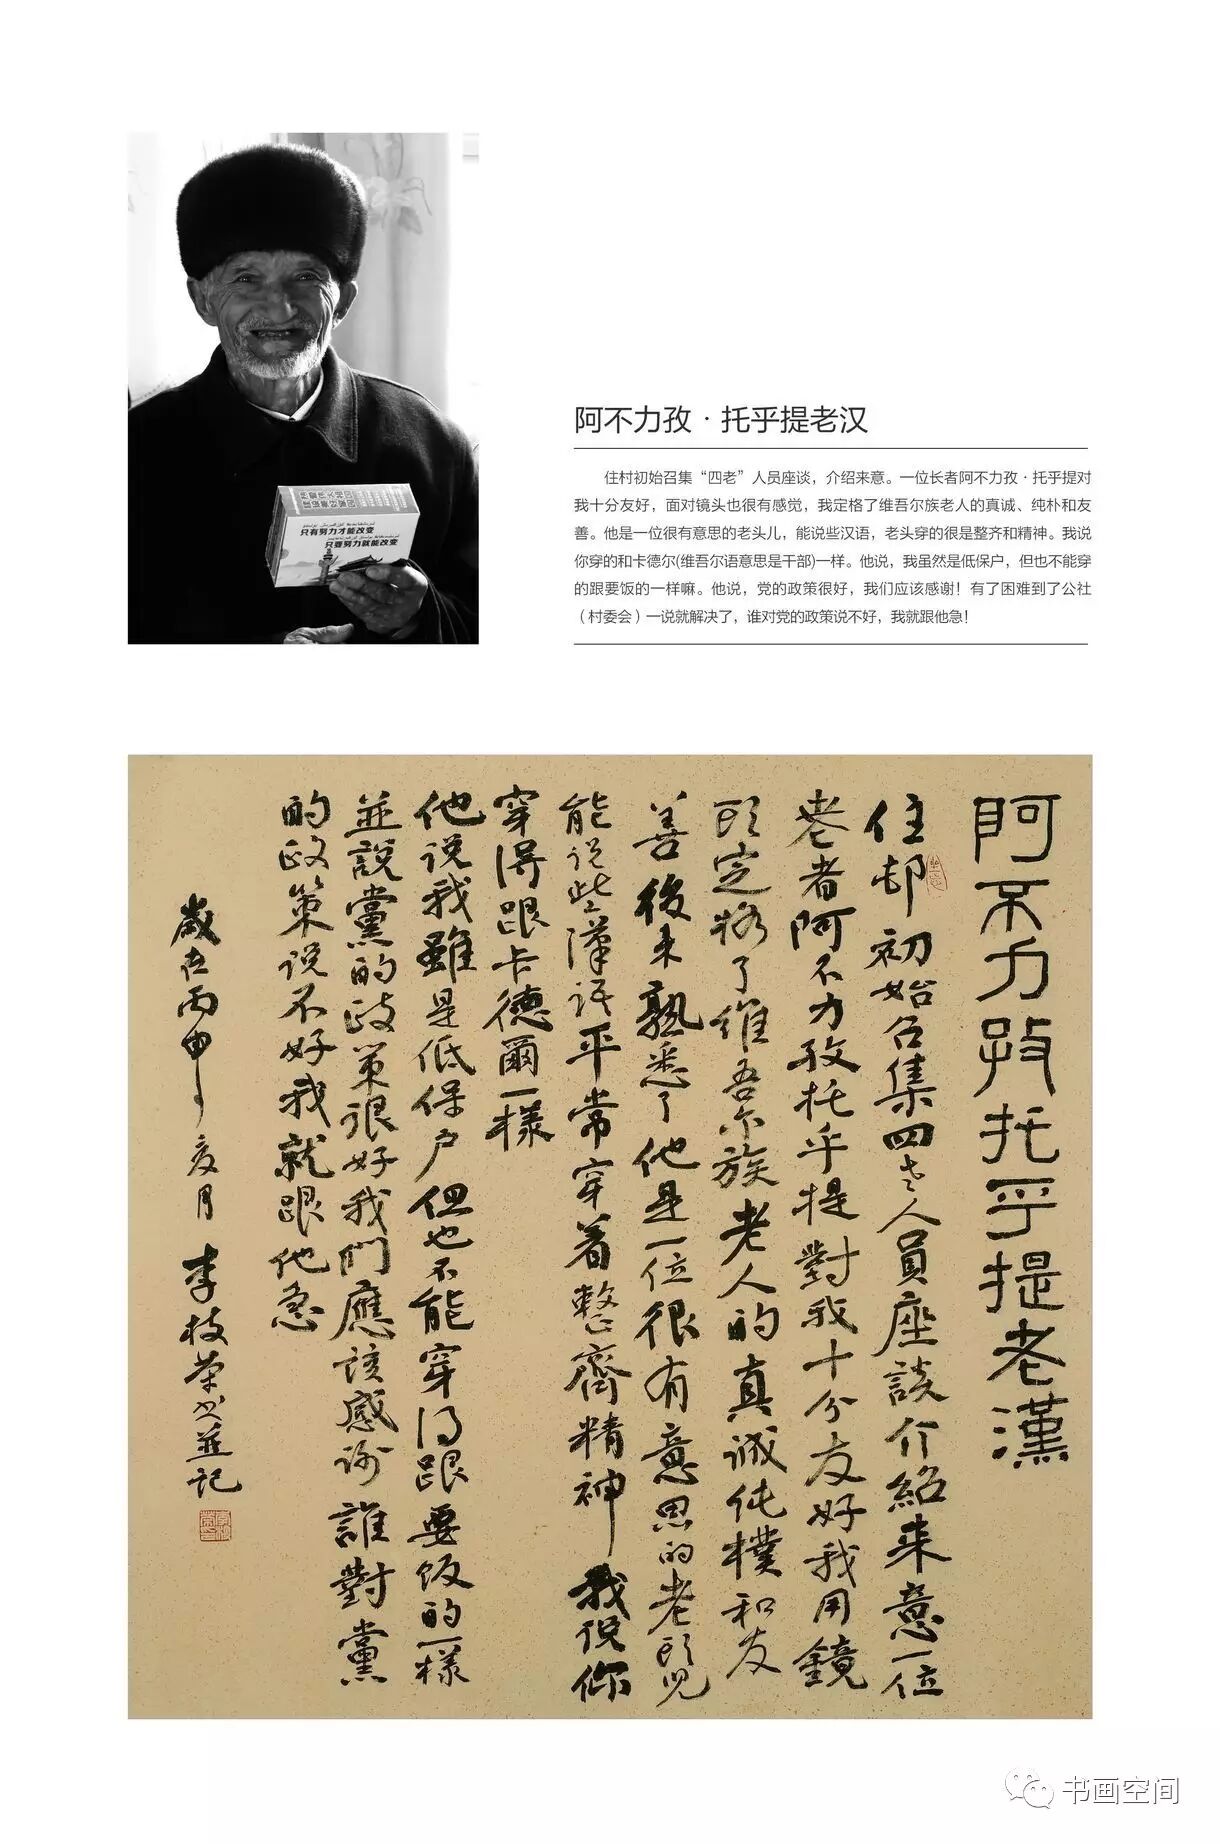 只有努力才能改变
只要努力就能改变
阿不力孜·托乎提老汉
住村初始召集“四老”人员座谈，介绍来意。一位长者阿不力孜·托乎提对
我十分友好，面对镜头也很有感觉，我定格了维吾尔族老人的真诚、纯朴和友
善。他是一位很有意思的老头儿，能说些汉语，老头穿的很是整齐和精神。我说
你穿的和卡德尔(维吾尔语意思是干部)一样。他说，我虽然是低保户，但也不能穿
的跟要饭的一样嘛。他说，党的政策很好，我们应该感谢！有了困难到了公社
（村委会）一说就解决了，谁对党的政策说不好，我就跟他急！
阿不力孜托乎提老漢
住邨初始召集四老人員座談介紹来意一位
老者阿不力孜托乎提對我十分友好我用鏡
头定格了维吾尔族老人的真诚纯樸和友
善後来熟悉了他是一位很有意思的老头儿
能说些漢语平常穿着整齊精神我说你
穿得跟卡德爾一樣
他说我雖是低保户但也不能穿得跟要饭的一樣
並說黨的政策很好我們應该感谢誰對黨
的政策说不好我就跟他急
歲在丙申夏月李枝荣书並記
书画空间